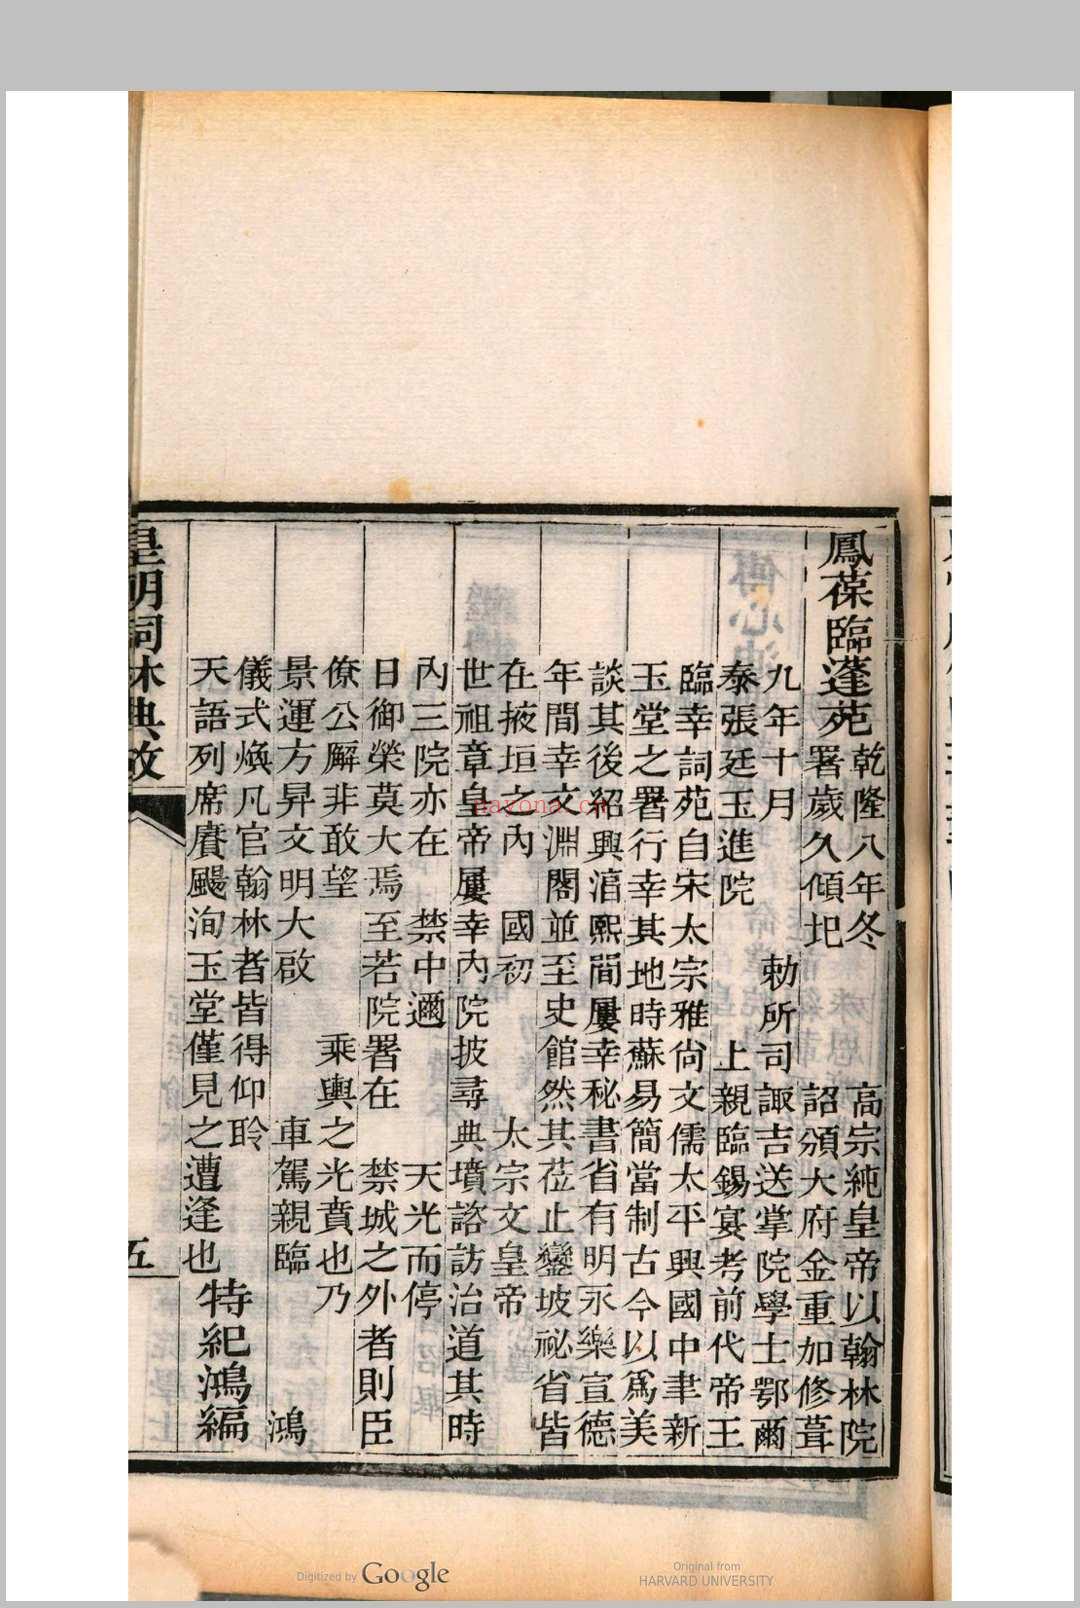 鳳葆臨蓬苑
乾隆八年冬 高宗純皇帝以翰林院
署歲久傾圯 詔頒大府金重加修葺
九年十月 勅所司諏吉送掌院學士鄂爾
泰張廷玉進院 上親臨錫宴考前代帝王
臨幸詞苑自宋太宗雅尙文儒太平興國中聿新
玉堂之署行幸其地時蘇易簡當制古今以爲美
談其後紹興湻熙間屢幸秘書省有明永樂宣德
年間幸文淵閣並至史館然其莅止鑾坡祕省皆
在掖垣之內 國初 太宗文皇帝
世祖章皇帝屢幸內院披尋典墳諮訪治道其時
內三院亦在 禁中邇 天光而停
日御榮莫大焉至若院署在 禁城之外者則臣
僚公廨非敢望 乘輿之光賁也乃
景運方昇文明大啟 車駕親臨 鴻
儀式煥凡官翰林者皆得仰聆
天語列席賡颺洵玉堂僅見之遭逢也
特紀鴻編
皇朝詞林典故
五
nayona.cn
Digitized by Google
Original from
HARVARD UNIVERSITY